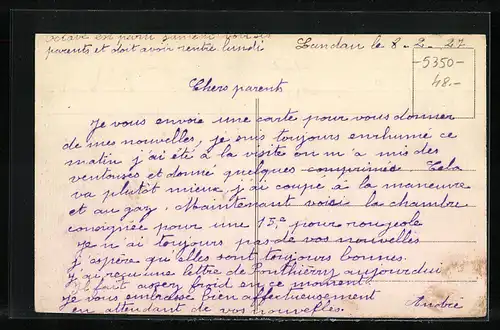 Octave est parti samedi voir ses
parents et doit avoir rentré lundi
Landau le 8-2-27
-5350-
48.-
Chers parents
Je vous envoie une carte pour vous donner
de mes nouvelles, je suis toujours enrhumé ce
matin j'ai été à la visite on m'a mis des
ventouses et donné quelques comprimés. Cela
va plutôt mieux, j'ai coupé à la manœuvre
et au gaz. Maintenant voici la chambre
consignée pour une 15,e pour rougeole
Je n'ai toujours pas de vos nouvelles
j'aspère qu'elles sont toujours bonnes.
j'ai reçu une lettre de Ponthierry aujourdui
Il fait assez froid en ce moment.
je vous embrasse bien affectueusement
en attendant de vos nouvelles.
André